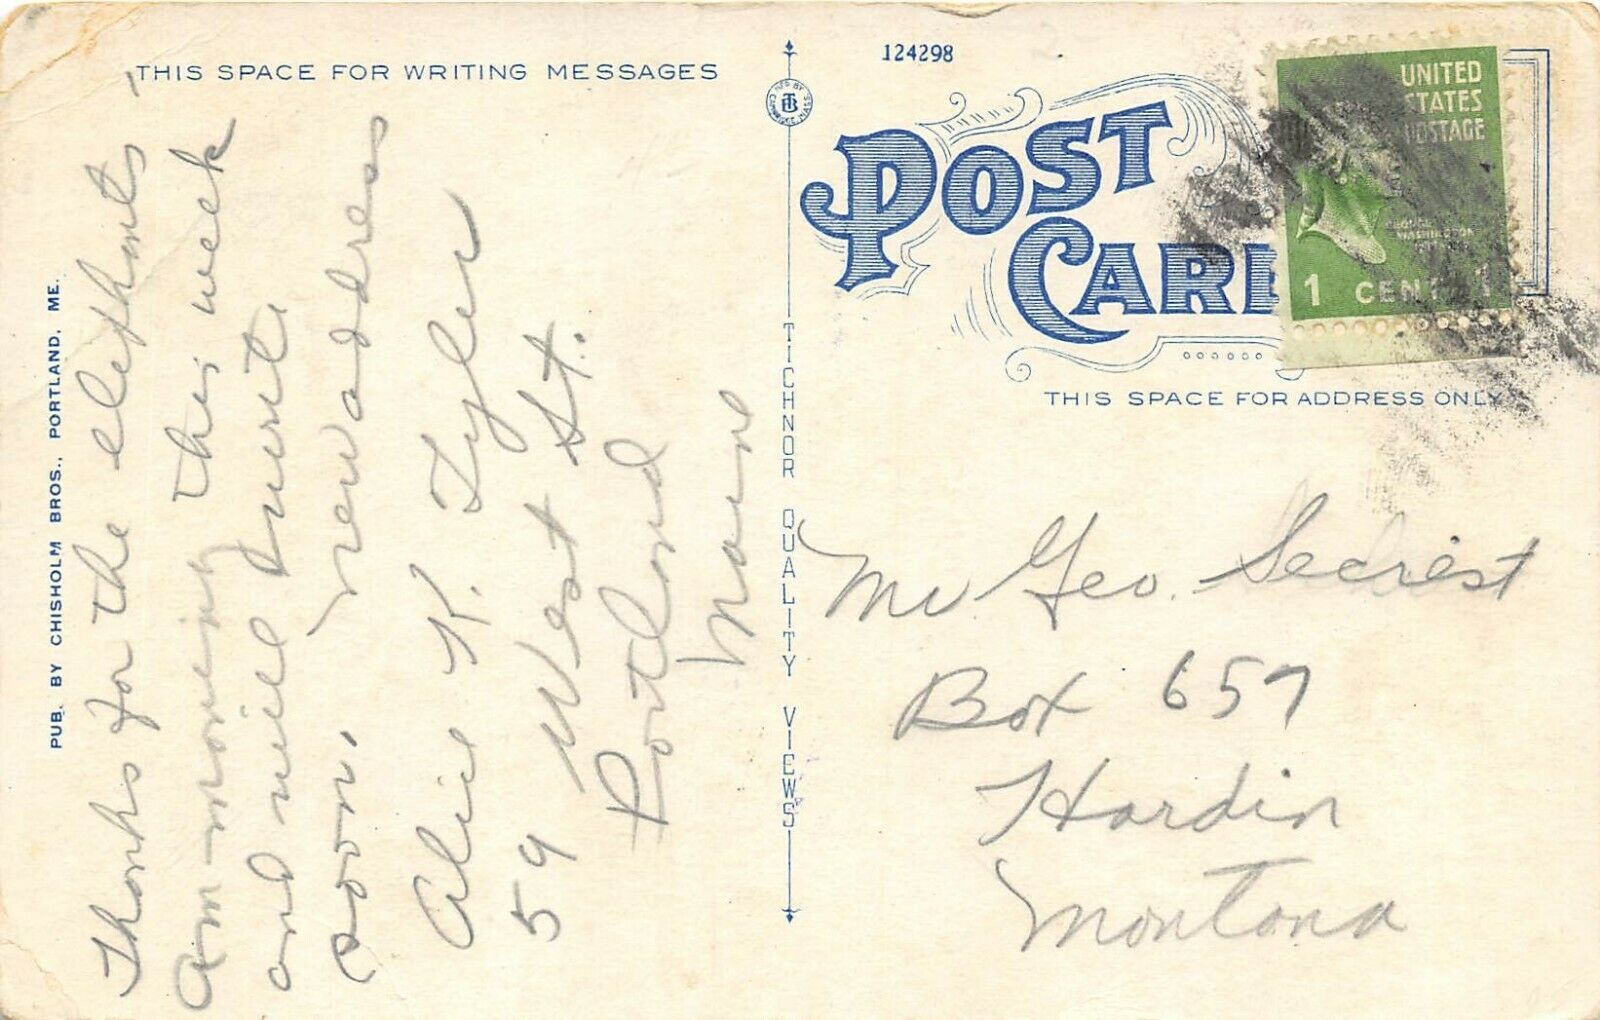 THIS SPACE FOR WRITING MESSAGES
Thanks for the elephants -
am moveing this week
and will write
new address
soon.
Alice K. Tyler
59 West St.
Portland
Maine
PUB. BY CHISHOLM BROS., PORTLAND, ME.
TICHNOR QUALITY VIEWS
MFG BY
TB
CAMBRIDGE, MASS
124298
POST
CARD
UNITED
STATES
POSTAGE
GEORGE
WASHINGTON
1 CENT 1
THIS SPACE FOR ADDRESS ONLY
Mr Geo. Secrest
Box 657
Hardin
Montana